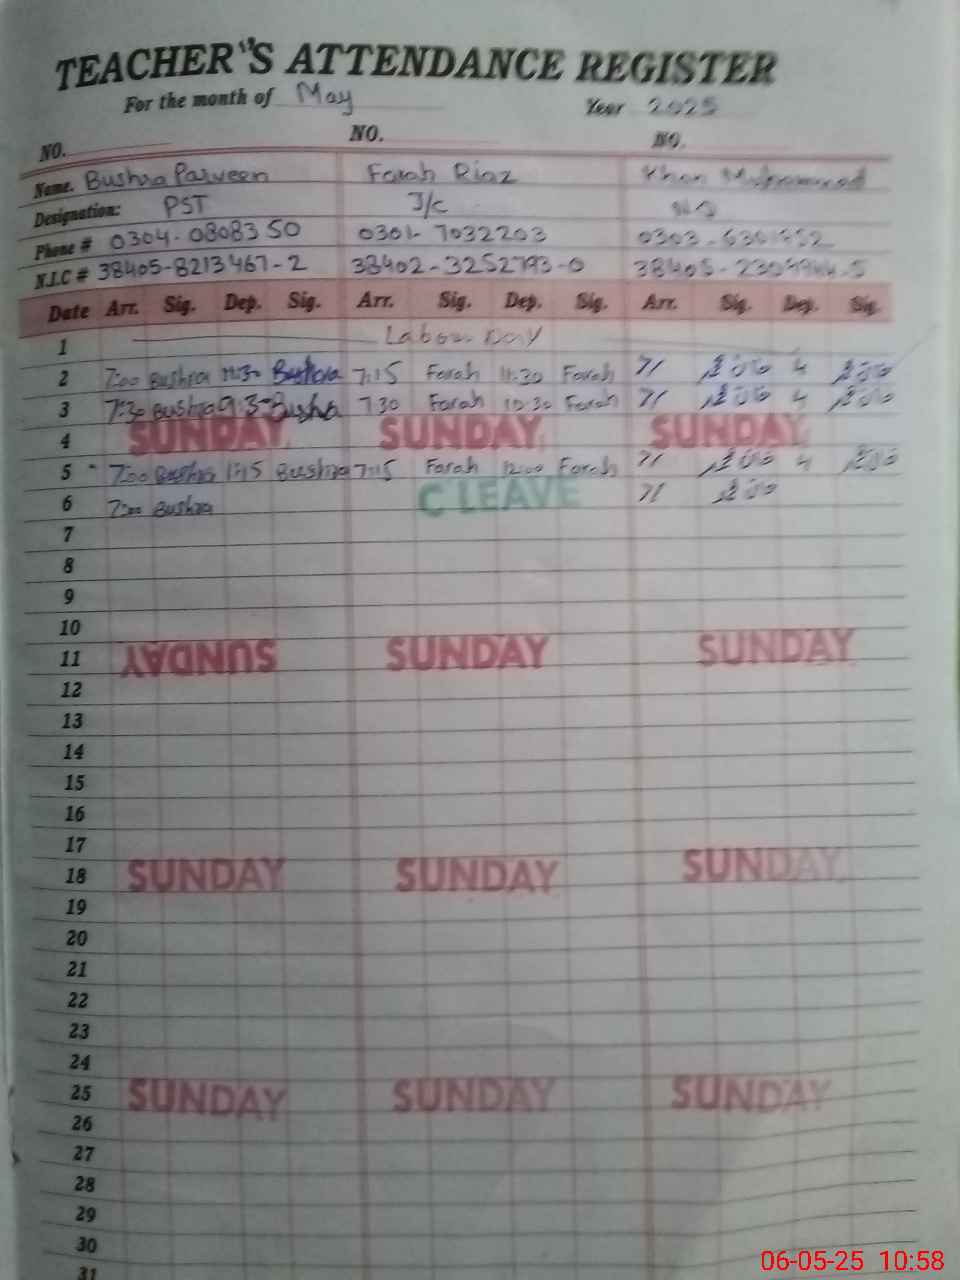 TEACHER'S ATTENDANCE REGISTER
For the month of May Year 2025
NO. NO. NO.
Name. Bushra Parveen Farah Riaz Khan Muhammad
Designation: PST I/C
Phone # 0304-0808350 0301-7032203
N.I.C # 38405-8213467-2 38402-3252793-0
Date Arr. Sig. Dep. Sig. Arr. Sig. Dep. Sig. Arr. Sig. Dep. Sig.
1 Labour Day
2 7:00 Bushra 11:30 Bushra 7:15 Farah 11:30 Farah 7/ 4
3 7:30 Bushra Bushra 7 30 Farah 10:30 Farah 7/ 4
4 SUNDAY SUNDAY SUNDAY
5 7:00 Bushra 1:15 Bushra 7:15 Farah 12:00 Farah 7/ 4
6 7:00 Bushra C LEAVE 7/
7
8
9
10
11 SUNDAY SUNDAY SUNDAY
12
13
14
15
16
17
18 SUNDAY SUNDAY SUNDAY
19
20
21
22
23
24
25 SUNDAY SUNDAY SUNDAY
26
27
28
29
30
31
06-05-25 10:58